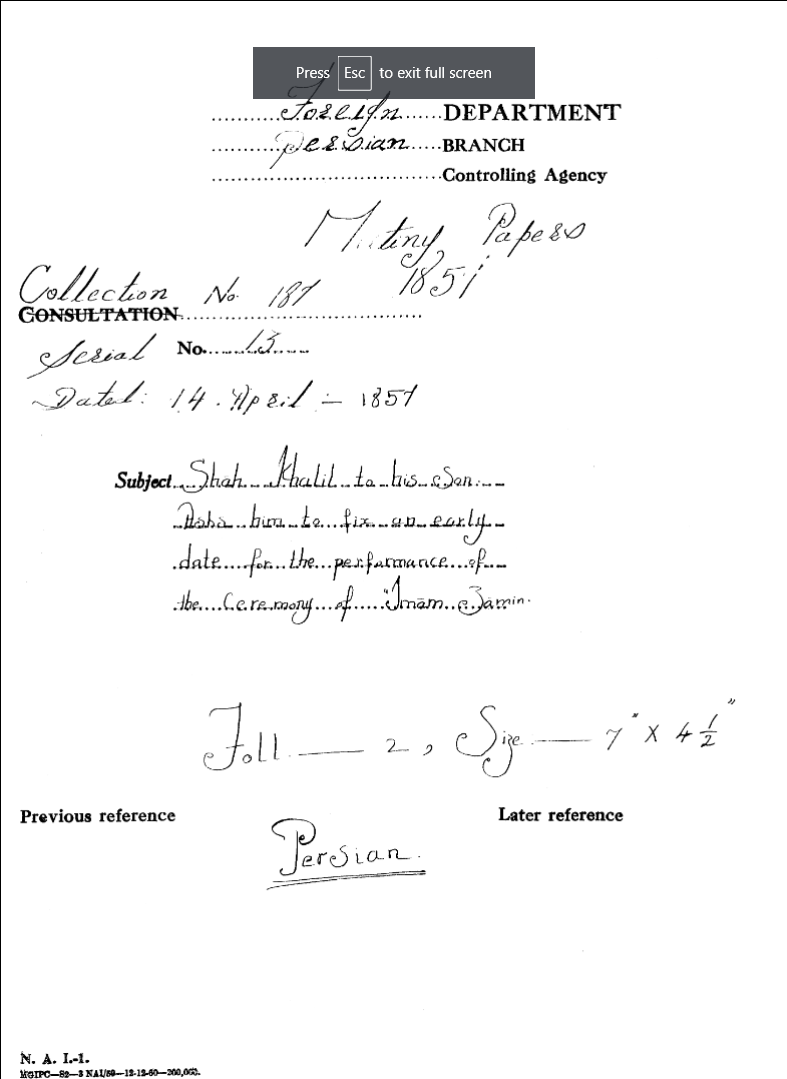 Press Esc to exit full screen
Foreign DEPARTMENT
Persian BRANCH
Controlling Agency
Mutiny Papers
1857
Collection No. 187
CONSULTATION
Serial No. 13
Dated: 14. April - 1857
Subject Shah Khalil to his Son.
Asks him to fix an early
date for the performance of
the Ceremony of Imām Zāmin.
Foll — 2, Size — 7" X 4 1/2"
Previous reference Later reference
Persian.
N. A. I.-1.
MGIPC—S2—3 NAI/59—12-12-60—200,000.